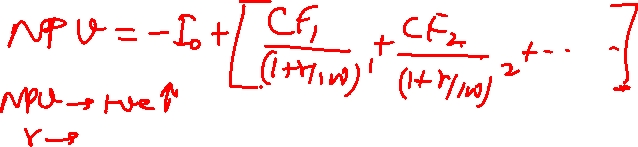 NPV = -I₀ + [CF₁/(1+r/100)¹ + CF₂/(1+r/100)² + ... ]
NPV → +ve ↑
r →